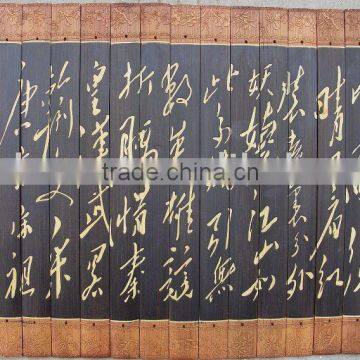 晴日看红
裝素裹分外
妖嬈江山如
此多嬌引無
數英雄競
折腰惜秦
皇漢武略
輸文采
唐宗宋祖
trade.china.cn